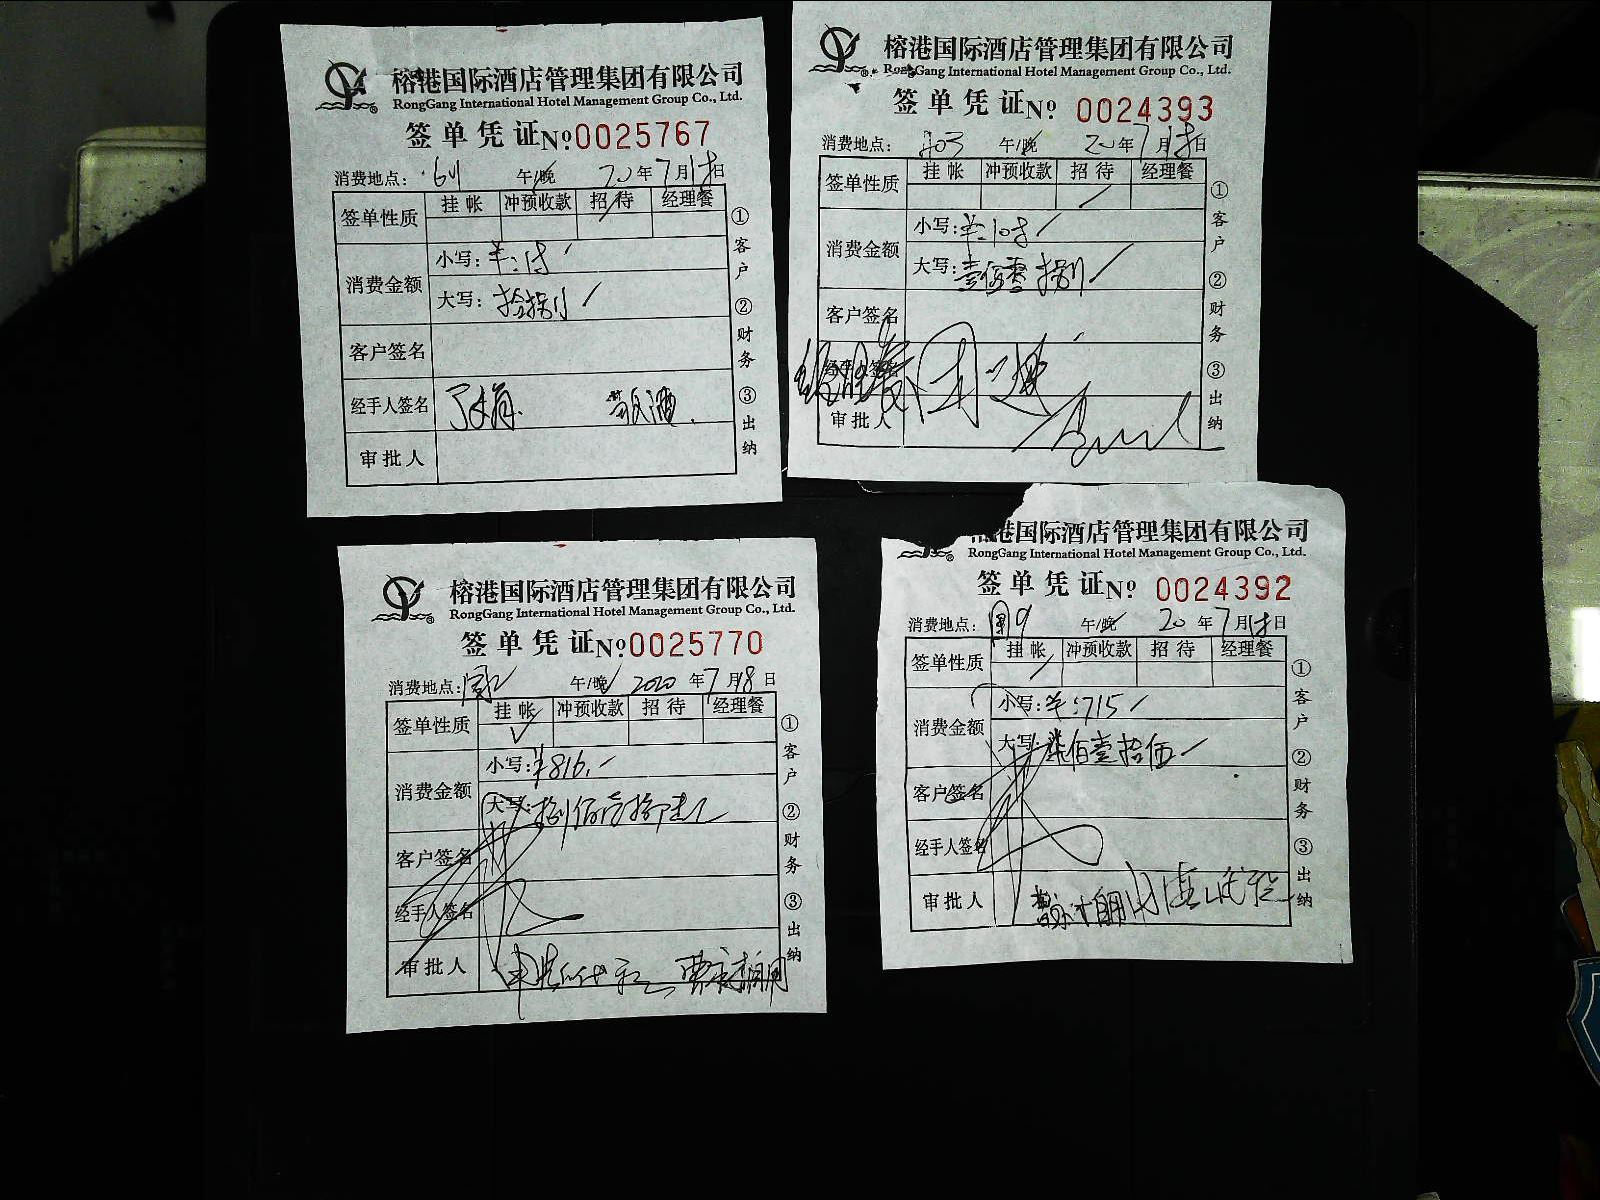 榕港国际酒店管理集团有限公司
RongGang International Hotel Management Group Co., Ltd.
签单凭证 No 0025767
消费地点: 午/晚 20年7月18日
签单性质 挂帐 冲预收款 招待 经理餐
消费金额 小写:羊:18
大写:拾捌
客户签名
经手人签名
审批人
①客户 ②财务 ③出纳
榕港国际酒店管理集团有限公司
RongGang International Hotel Management Group Co., Ltd.
签单凭证 No 0024393
消费地点: 403 午/晚 20年7月18日
签单性质 挂帐 冲预收款 招待 经理餐
消费金额 小写:羊:108
大写:壹佰零捌
客户签名
经手人签名
审批人
①客户 ②财务 ③出纳
榕港国际酒店管理集团有限公司
RongGang International Hotel Management Group Co., Ltd.
签单凭证 No 0025770
消费地点: 午/晚 2020年7月18日
签单性质 挂帐 冲预收款 招待 经理餐
消费金额 小写:¥816.
大写:捌佰
客户签名
经手人签名
审批人
①客户 ②财务 ③出纳
港国际酒店管理集团有限公司
RongGang International Hotel Management Group Co., Ltd.
签单凭证 No 0024392
消费地点: 午/晚 20年7月18日
签单性质 挂帐 冲预收款 招待 经理餐
消费金额 小写:羊:715
大写:柒佰壹拾伍
客户签名
经手人签名
审批人
①客户 ②财务 ③出纳